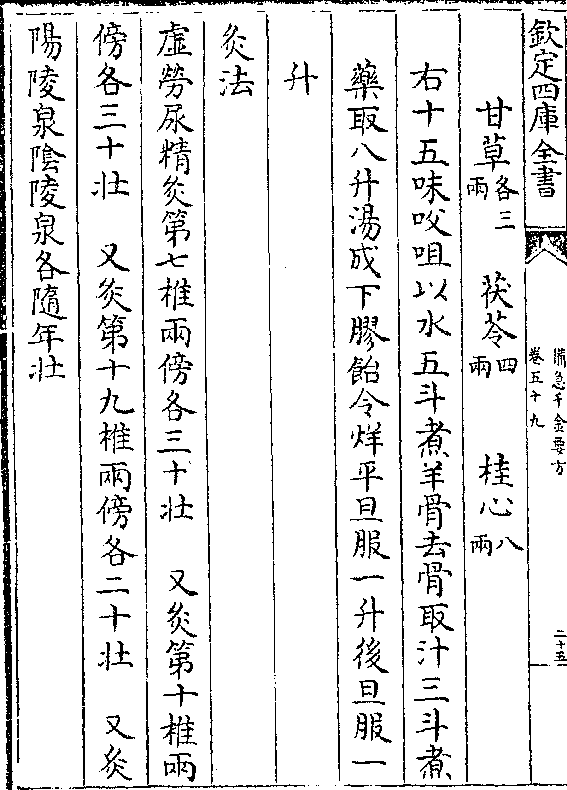 欽定四庫全書
備急千金要方
卷五十九
二十五
甘草各三兩 茯苓四兩 桂心八兩
右十五味㕮咀以水五斗煮羊骨去骨取汁三斗煮
藥取八升湯成下膠飴令烊平旦服一升後旦服一
升
灸法
虛勞尿精灸第七椎兩傍各三十壯 又灸第十椎兩
傍各三十壯 又灸第十九椎兩傍各二十壯 又灸
陽陵泉陰陵泉各隨年壯